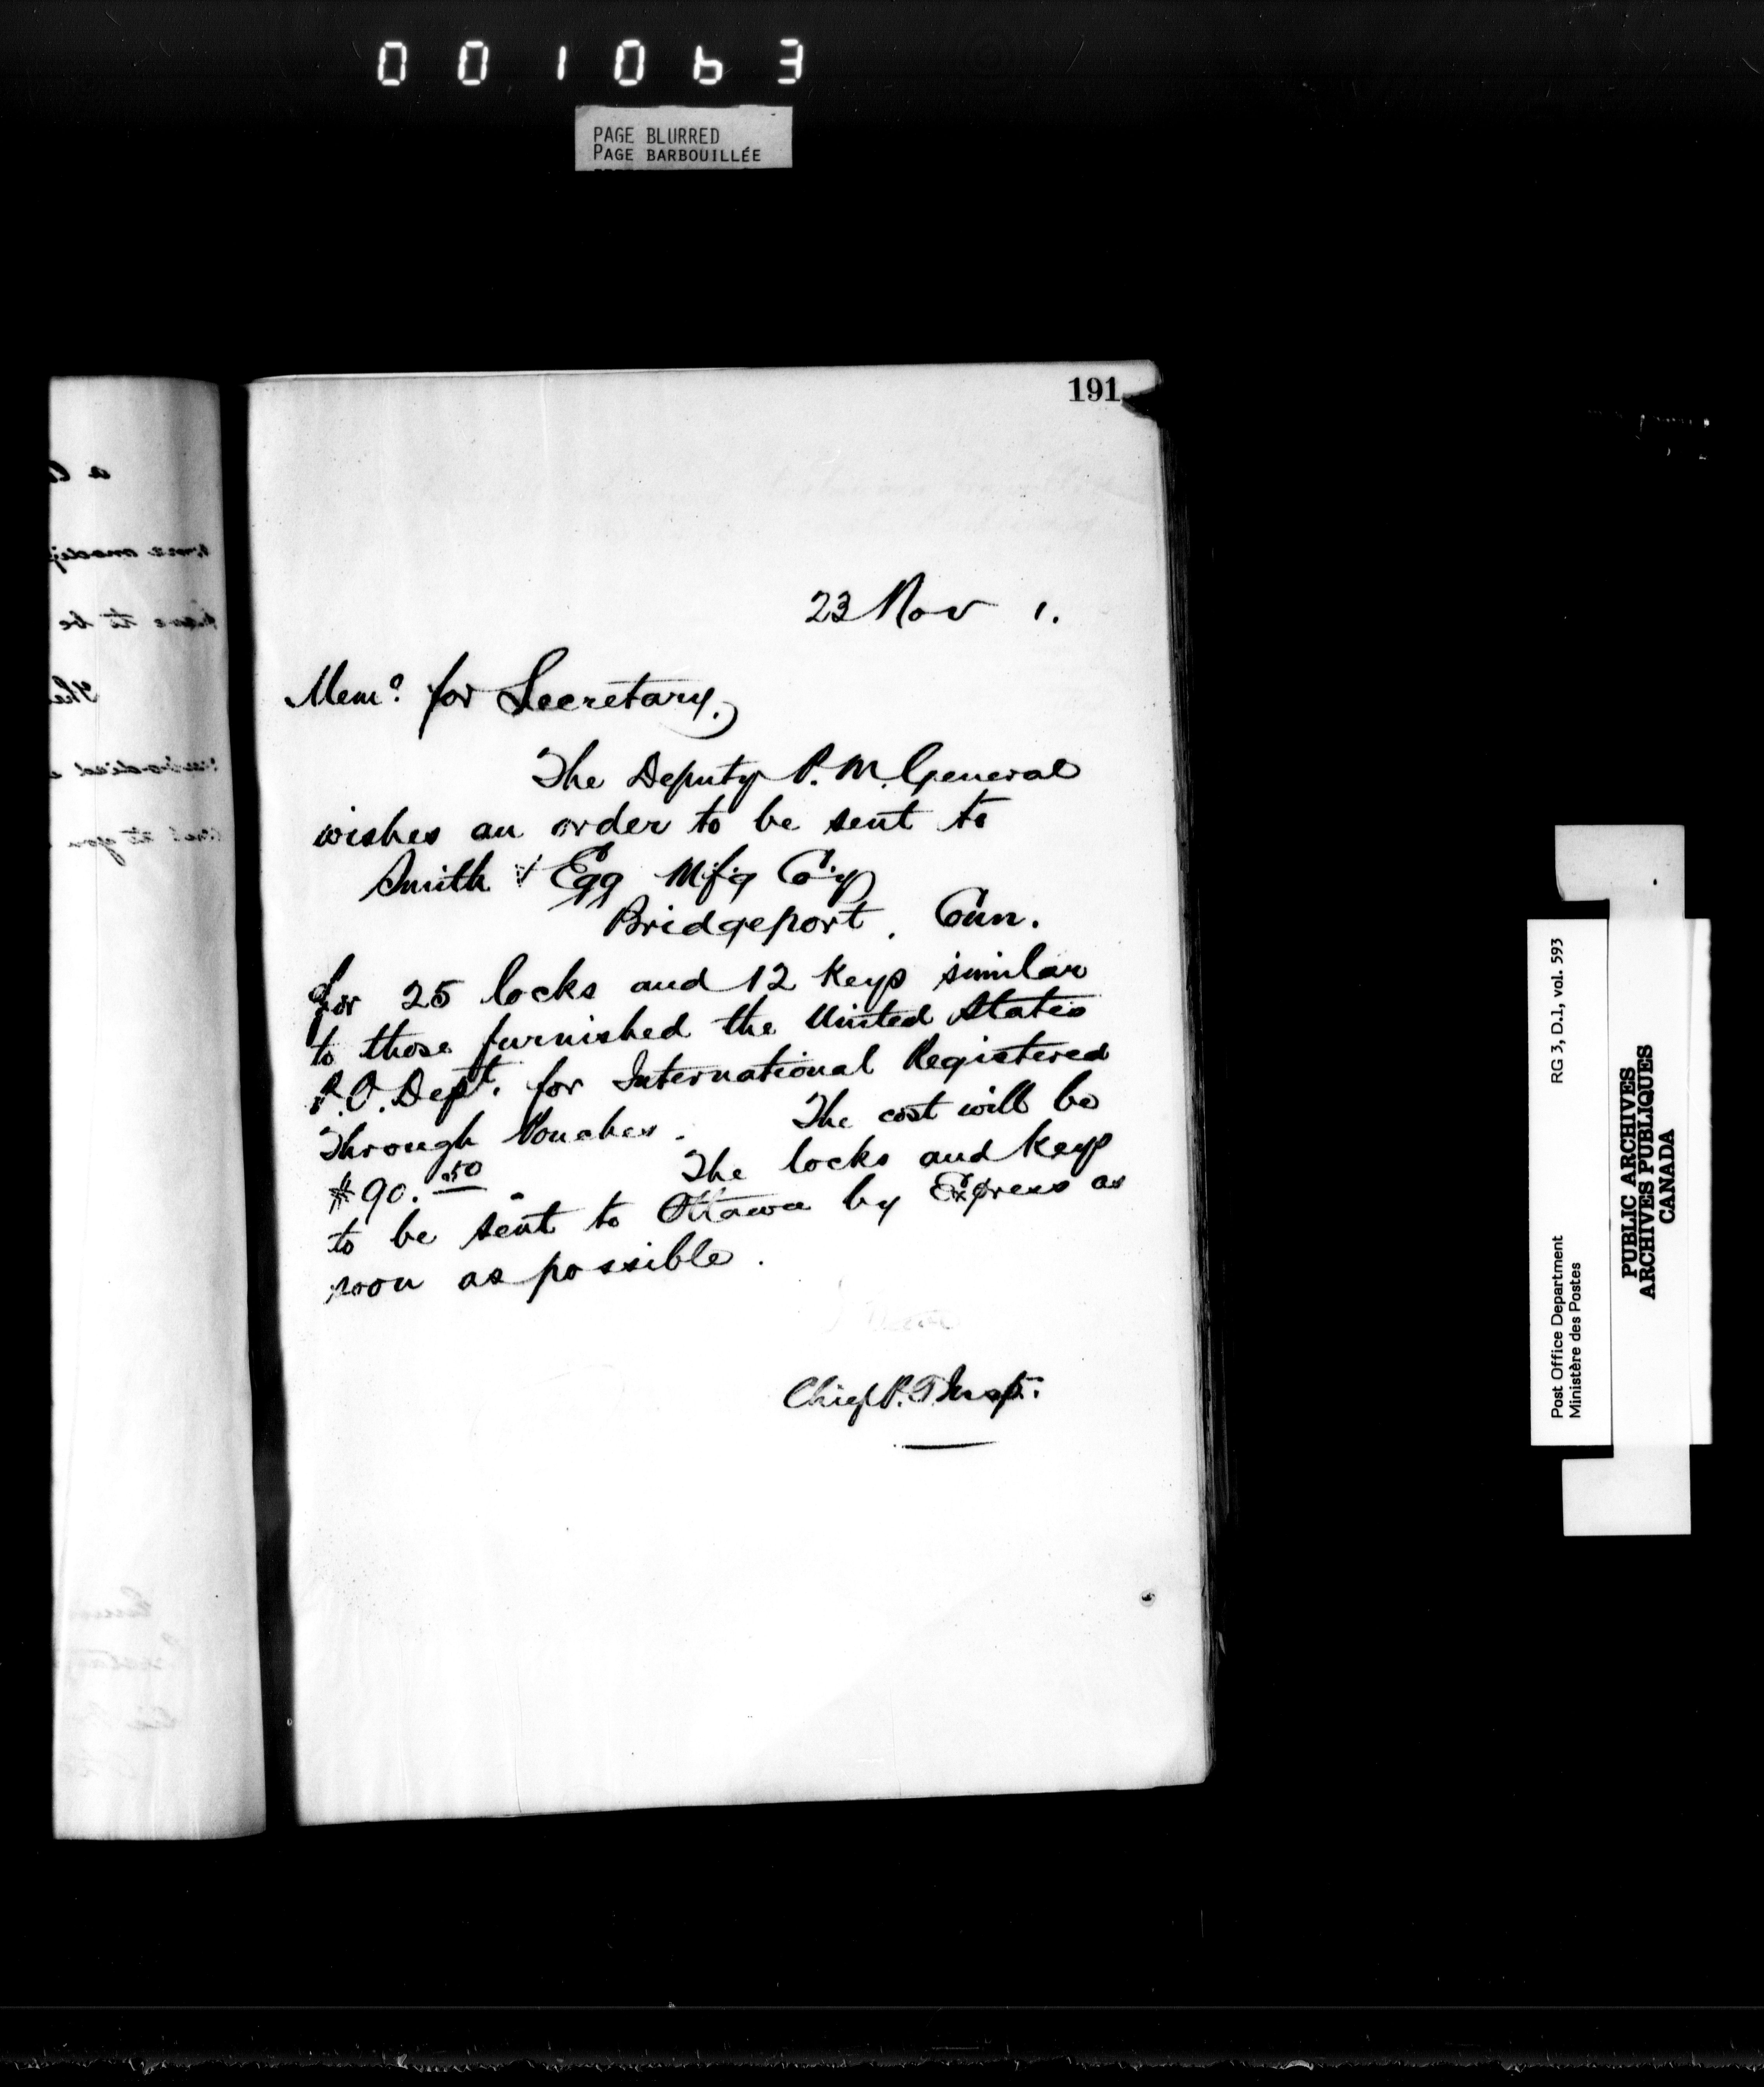 001063
PAGE BLURRED
PAGE BARBOUILLÉE
191
23 Nov 1.
Memo. for Secretary.
The Deputy P. M. General
wishes an order to be sent to
Smith & Egg M'f'g Co'y
Bridgeport. Conn.
for 25 locks and 12 keys similar
to those furnished the United States
P.O. Dept. for International Registered
Through Pouches. The cost will be
$90.50. The locks and keys
to be sent to Ottawa by Express as
soon as possible.
Chief P.O. Inspr.
RG 3, D.1, vol. 593
Post Office Department
Ministère des Postes
PUBLIC ARCHIVES
ARCHIVES PUBLIQUES
CANADA